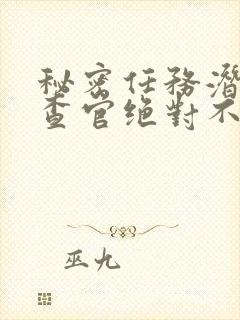 秘密任務潛
查官絶對不
巫九